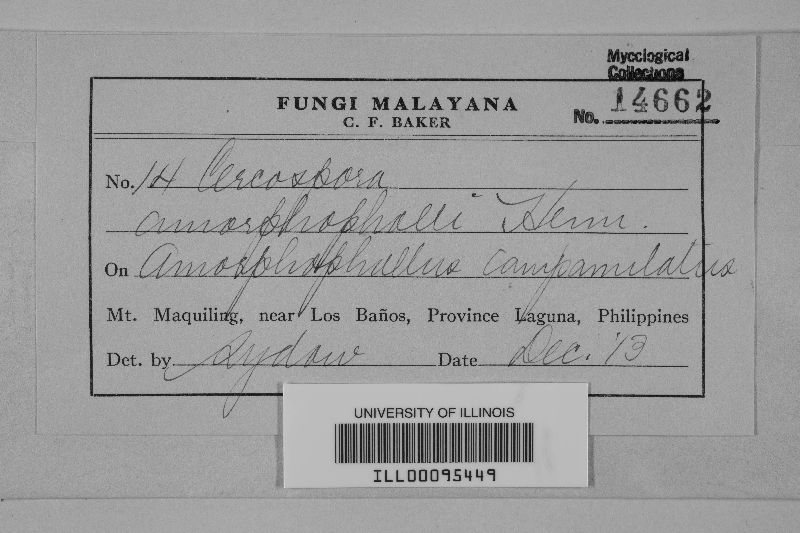 Mycological
Collections
No. 14662
FUNGI MALAYANA
C. F. BAKER
No. 14 Cercospora
amorphophalli Henn.
On Amorphophallus campanulatus
Mt. Maquiling, near Los Baños, Province Laguna, Philippines
Det. by Sydow Date Dec. '13
UNIVERSITY OF ILLINOIS
ILL00095449